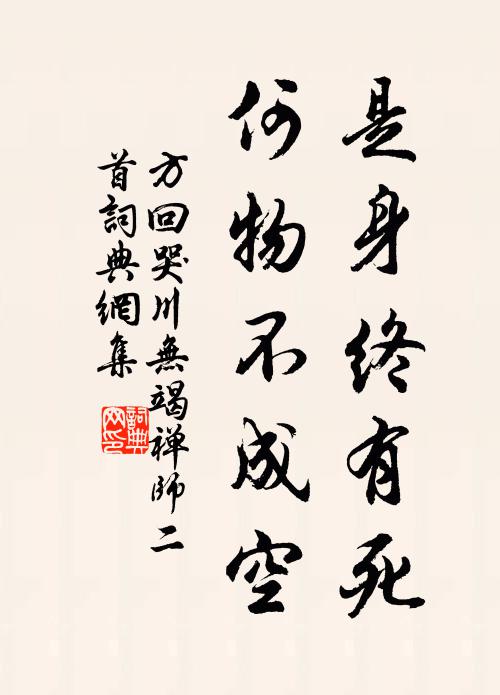 是身終有死
何物不成空
方回哭川無竭禅師二
首詞典網集
詞典网印